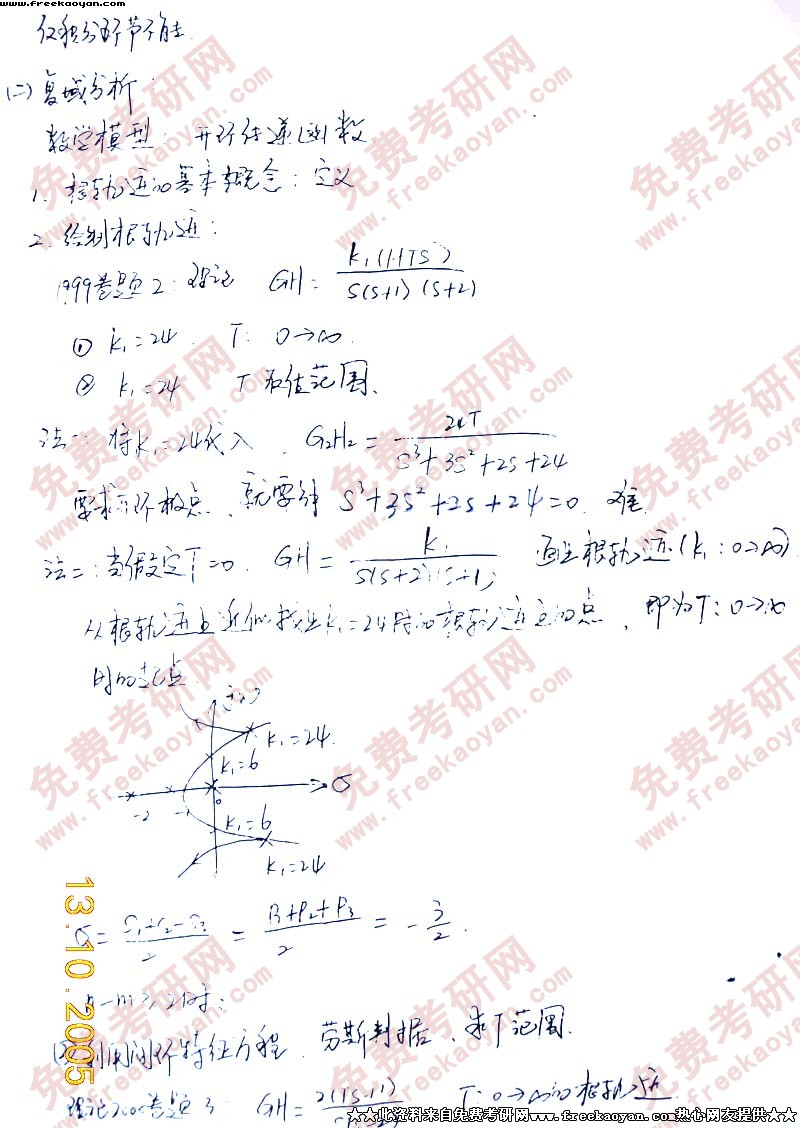 www.freekaoyan.com
仅积分环节不自主.
(二) 复域分析:
数学模型: 开环传递函数
1. 根轨迹的基本概念: 定义
2. 绘制根轨迹:
1999卷题2: 理论 GH = k₁(1+TS) / S(S+1)(S+2)
① k₁=24 T: 0→∞.
② k₁=24 T 取值范围.
法一: 将k₁=24代入, G₂H₂ = 24T / S³+3S²+2S+24
要求开环极点, 就要解 S³+3S²+2S+24=0. 难.
法二: 当假定T=0. GH = k₁ / S(S+2)(S+1) 画出根轨迹(k₁: 0→∞)
从根轨迹上近似找出k₁=24时的根轨迹上的点, 即为T: 0→∞
时的起点.
jω
k₁=24.
k₁=6
σ
-2 -1 0
k₁=6
k₁=24
σ = = P₁+P₂+P₃ / 2 = -3/2.
n-m≥2时:
(2) 利用闭环特征方程, 劳斯判据, 求T范围.
理论2000卷题3: GH = T: 0→∞的根轨迹
13.10.2005
免费考研网
www.freekaoyan.com
★★此资料来自免费考研网www.freekaoyan.com热心网友提供★★